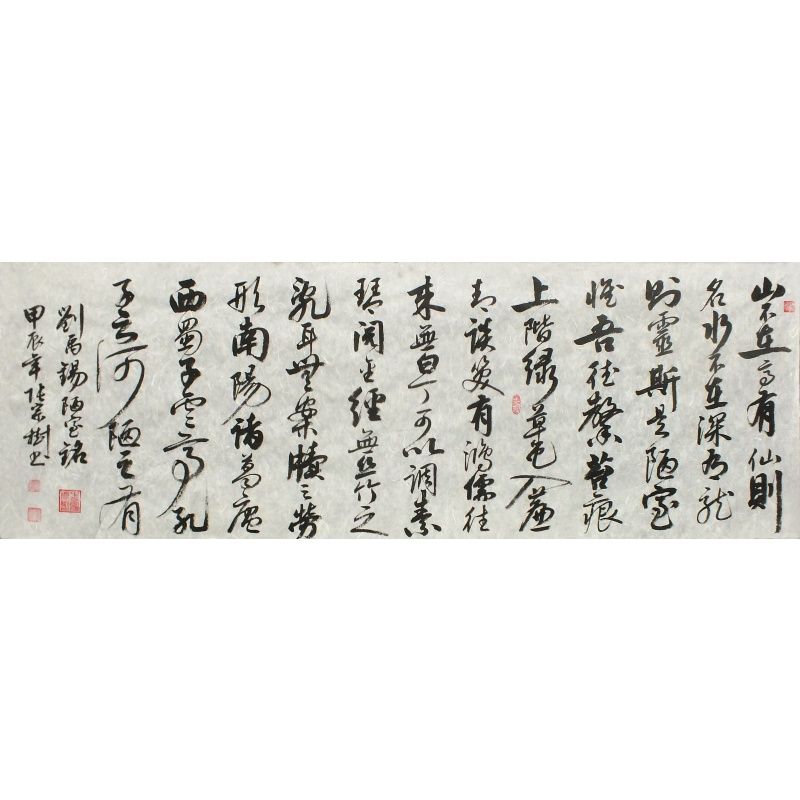 山不在高有仙則
名水不在深有龍
則靈斯是陋室
惟吾德馨苔痕
上階綠草色入簾
青談笑有鴻儒往
來無白丁可以調素
琴閱金經無絲竹之
亂耳無案牘之勞
形南陽諸葛廬
西蜀子雲亭孔
子云何陋之有
劉禹錫陋室銘
甲辰年張宗樹書